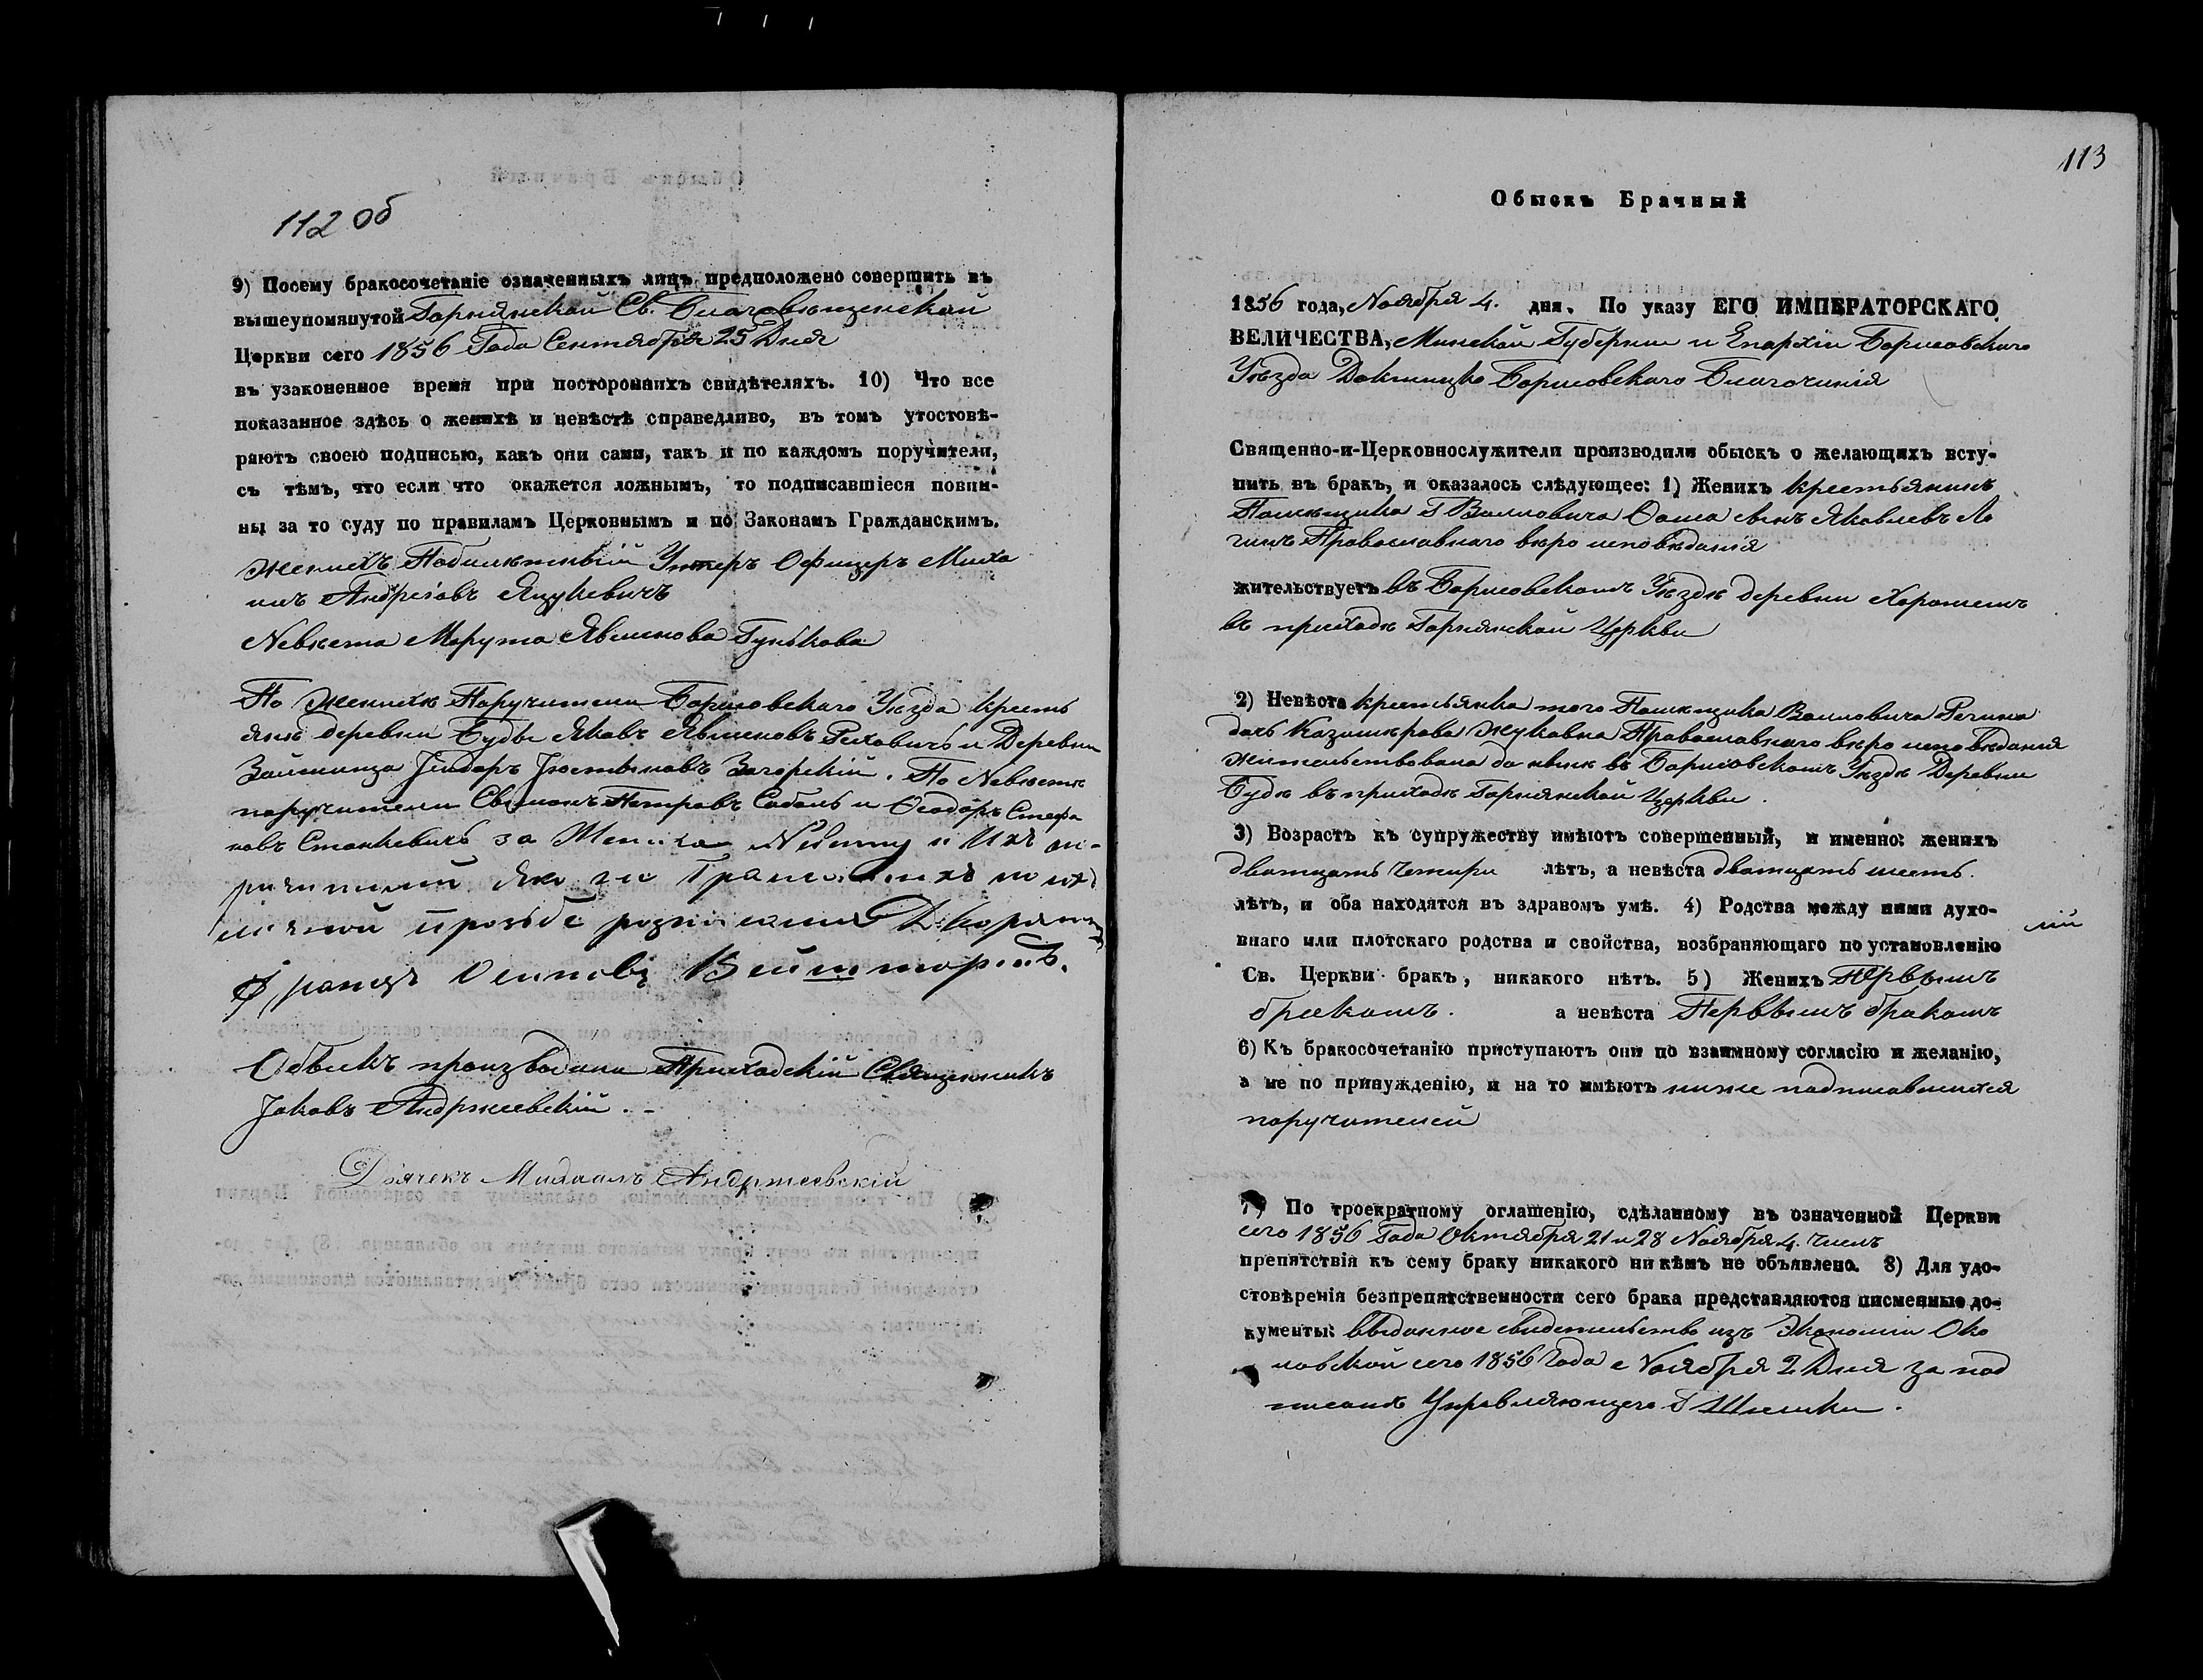 112 об
9) Посему бракосочетаніе означенныхъ лицъ предположено совершить въ
вышеупомянутой Горнянской Св. Благовѣщенской
Церкви сего 1856 Года Сентября 25 Дня
въ узаконенное время при постороннихъ свидѣтеляхъ. 10) Что все
показанное здѣсь о женихѣ и невѣстѣ справедливо, въ томъ утостовѣ-
ряютъ своею подписью, какъ они сами, такъ и по каждомъ поручители,
съ тѣмъ, что если что окажется ложнымъ, то подписавшіеся повин-
ны за то суду по правиламъ Церковнымъ и по Законамъ Гражданскимъ.
женихъ Унтеръ Офицеръ Миха
илъ Андреіовъ Яцукевичъ
Невѣста Марута Гунькова
По женихѣ Поручители Борисовскаго Уѣзда кресть
яне деревни Будъ Яковъ и Деревни
Загорскій. По Невѣстѣ
поручители Петровъ Соболь и Ѳеодоръ Стефа
новъ Станкевичъ за Жениха Невѣсту и Ихъ по-
ручителей яко не Грамотныхъ по ихъ
личной прозьбе Дворянинъ
Францъ Осиповъ
Обыскъ производили Приходскій Священникъ
Іаковъ Андржеевскій.
Дьячекъ Михаилъ Андржеевскій
113
Обыскъ Брачный
1856 года, Ноября 4. дня. По указу ЕГО ИМПЕРАТОРСКАГО
ВЕЛИЧЕСТВА, Минской Губерніи и Епархіи Борисовскаго
Уѣзда Докшицко Борисовскаго Благочинія
Священно-и-Церковнослужители производили обыскъ о желающихъ всту-
пить въ бракъ, и оказалось слѣдующее: 1) Женихъ крестьянинъ
Помѣщика Г Воловича Ѳома Яковлевъ
Православнаго вѣро исповѣданія
жительствуетъ въ Борисовскомъ Уѣздѣ деревни
въ приходѣ Горнянской Церкви
2) Невѣста крестьянка того Помѣщика Воловича Регина
дочь Казимѣрова Жуковна Православнаго вѣро исповѣданія
жительствовала до нынѣ въ Борисовскомъ Уѣздѣ Деревни
Будѣ въ приходѣ Горнянской Церкви.
3) Возрастъ къ супружеству имѣютъ совершенный, и именно: женихъ
дватцать четыри лѣтъ, а невѣста дватцать шесть.
лѣтъ, и оба находятся въ здравомъ умѣ. 4) Родства между ними духо-
внаго или плотскаго родства и свойства, возбраняющаго по установленію
Св. Церкви бракъ, никакого нѣтъ. 5) Женихъ Первымъ
бракомъ. а невѣста Первымъ бракомъ
6) Къ бракосочетанію приступаютъ они по взаимному согласію и желанію,
а не по принужденію, и на то имѣютъ ниже подписавшихся
поручителей
7) По троекратному оглашенію, сдѣланному въ означенной Церкви
сего 1856 Года Октября 21 и 28 Ноября 4. числъ
препятствія къ сему браку никакого ни кѣмъ не объявлено. 8) Для удо-
стовѣренія безпрепятственности сего брака представляются писменные до-
кументы: выданное свидетельство изъ Экономіи Око
ловской сего 1856 Года Ноября 2 Дня за под
писомъ Управляющего Г